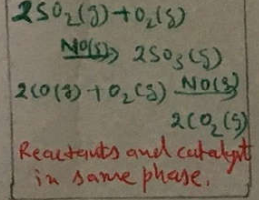 2SO₂(g)+O₂(g)
NO(g)→ 2SO₃(g)
2CO(g)+O₂(g) NO(g)→
2CO₂(g)
Reactants and catalyst
in same phase.